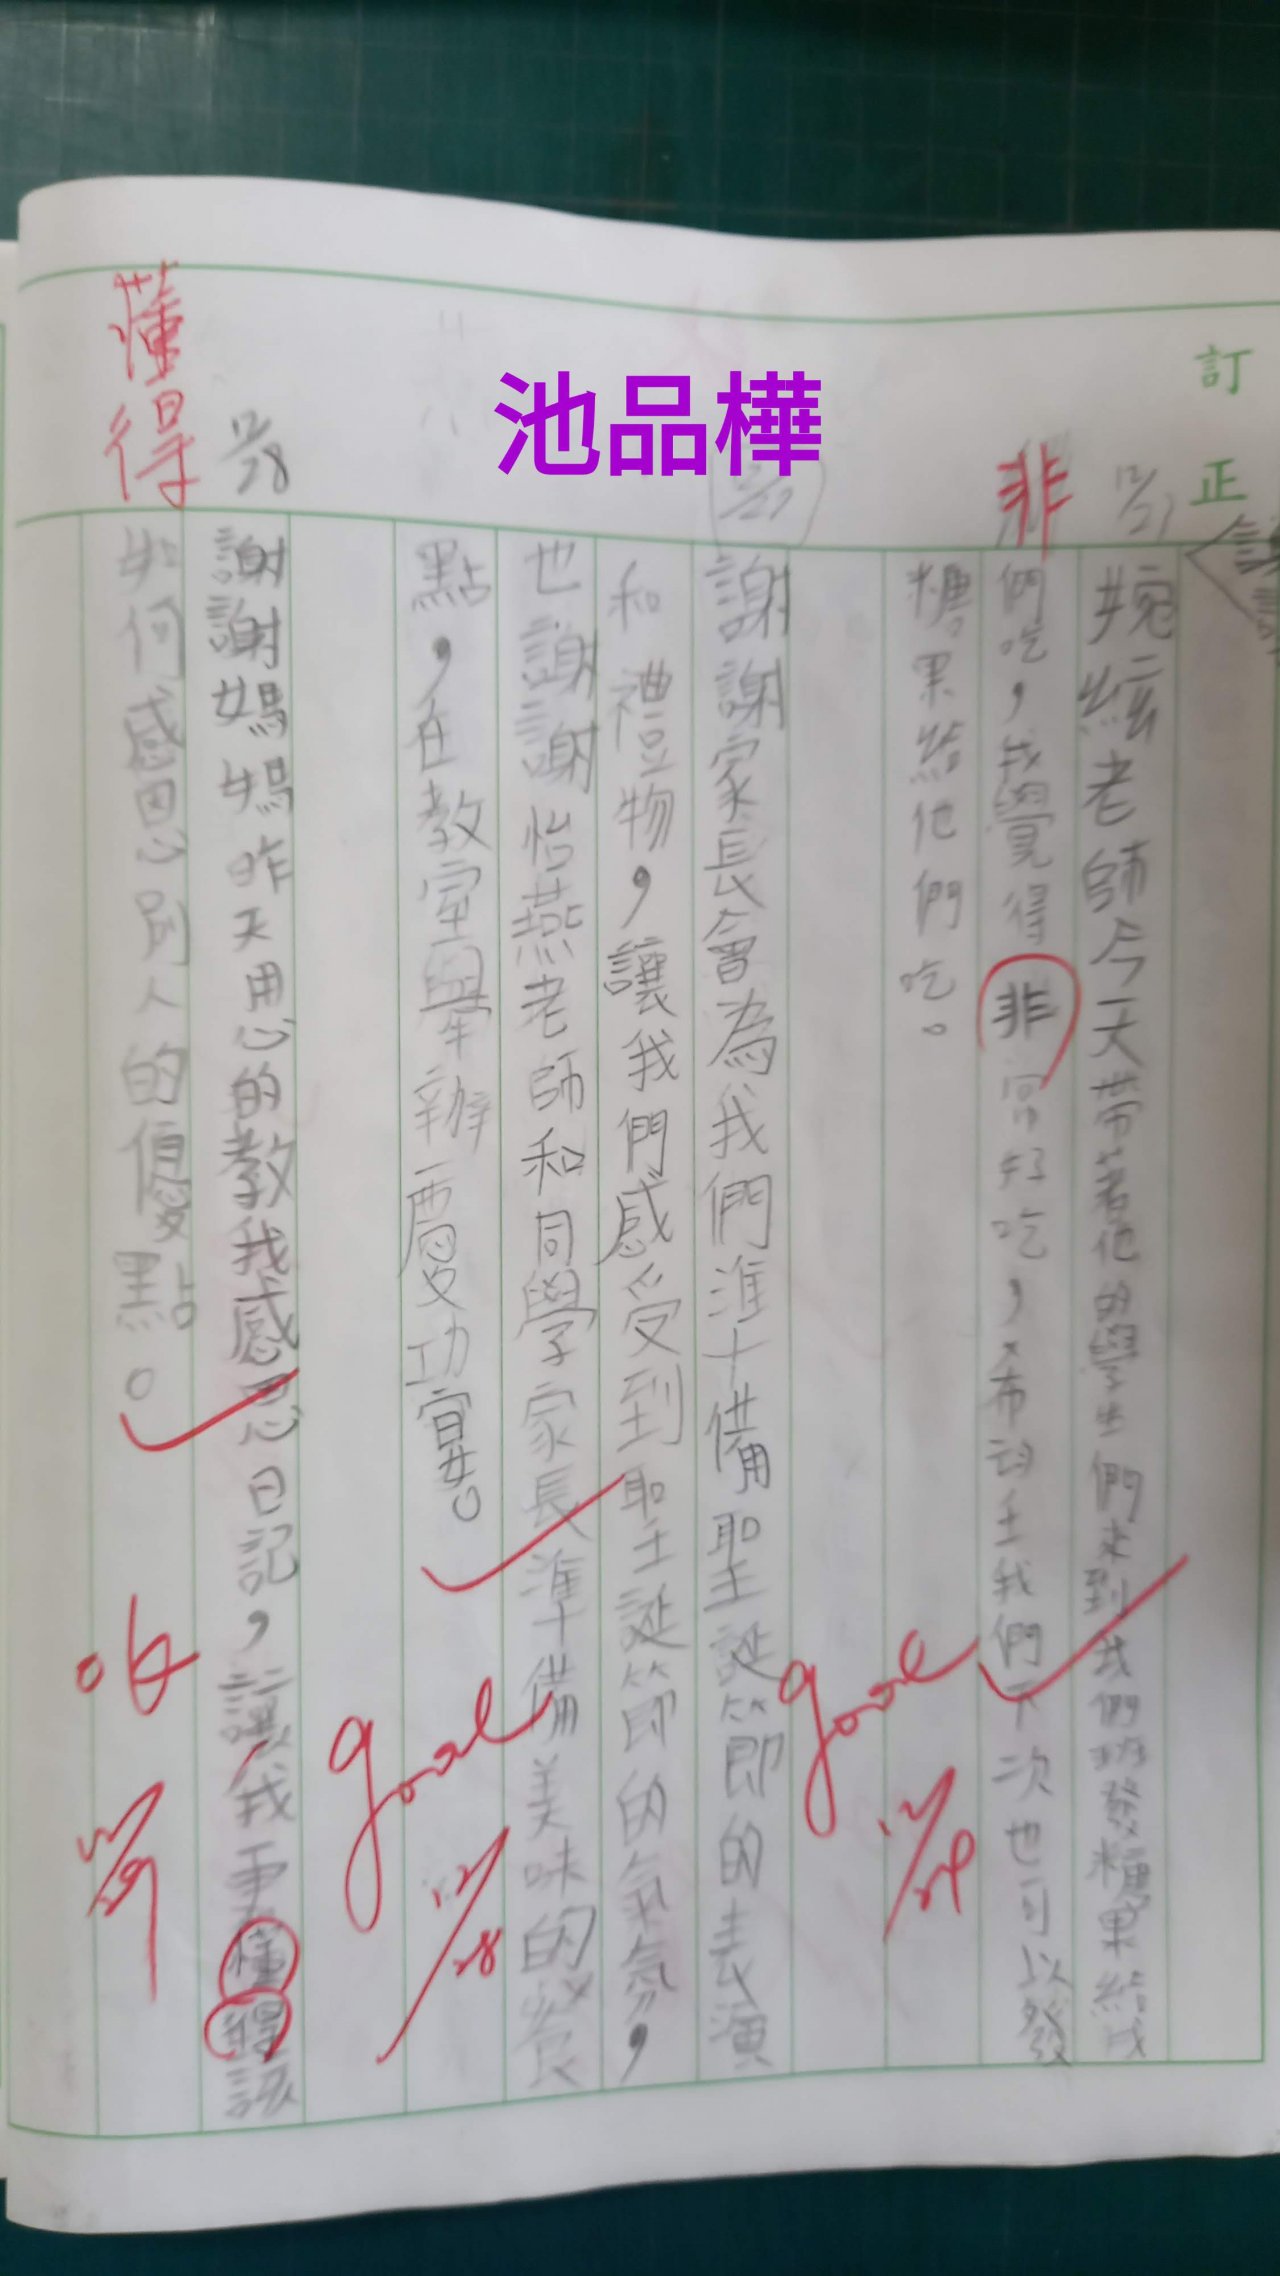 池品樺
訂正
12/27
捥絃老師今天帶著他的學生們來到我們班發糖果給我
們吃，我覺得非常好吃，希望我們下次也可以發
糖果給他們吃。
非
good
12/29
12/27
謝謝家長會為我們準備聖誕節的表演
和禮物，讓我們感受到聖誕節的氣氛，
也謝謝怡燕老師和同學家長準備美味的餐
點，在教室舉辦慶功宴。
good
12/28
12/28
謝謝媽媽昨天用心的教我感恩日記，讓我更懂得該
如何感恩別人的優點。
懂得
12/29